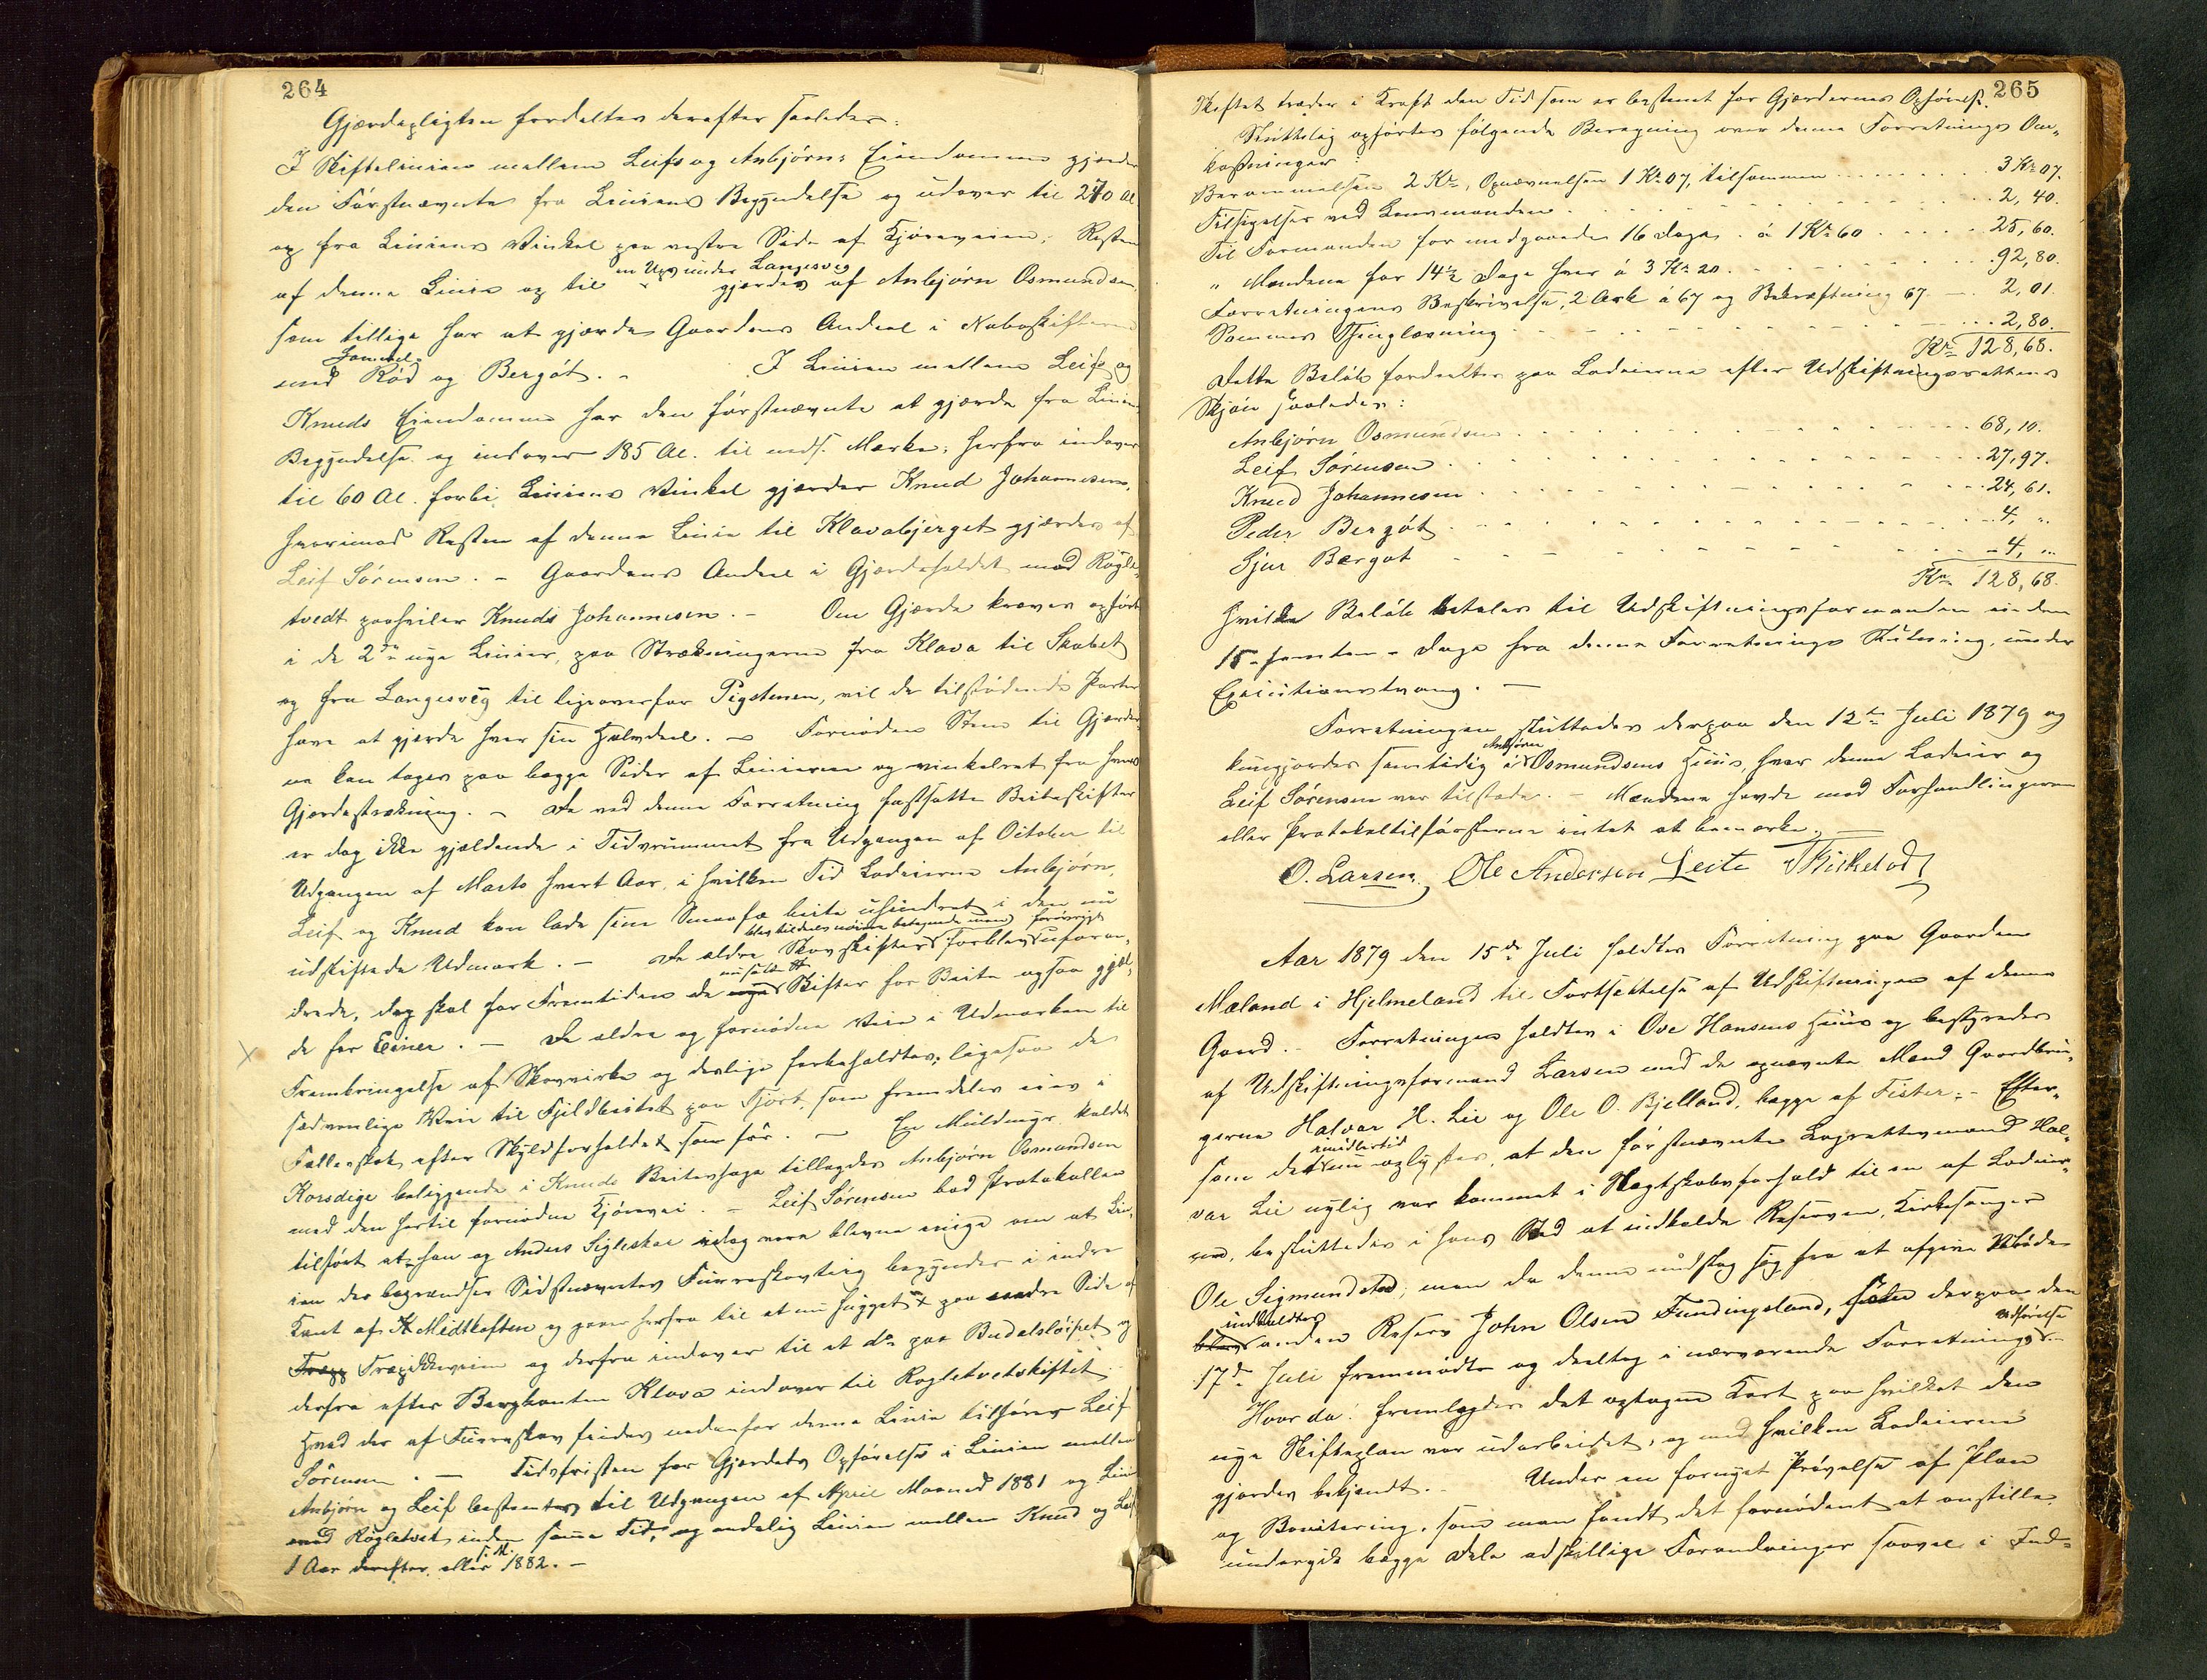 264
Gjærdepligten fordeltes derefter saaledes:
I Skiftelinien mellem Leifs og Anbjørns Eiendomme gjærder
den Førstnævnte fra Liniens Begyndelse og udover til 270 Al
og fra Liniens Vinkel paa vestre Side af Kjøreveien; Resten
af denne Linie og til en Ups under Langesveg gjærdes af Anbjørn Osmundsen,
som tillige har at gjærde Gaardens Andeel i Naboskifterne
med Rød og Bergøt. - I Linien mellem Leifs og
Knuds Eiendomme har den førstnævnte at gjærde fra Liniens
Begyndelse og indover 185 Al. til nedf. Mærke; herfra indover
til 60 Al. forbi Liniens Vinkel gjærder Knud Johannesen,
hvorimod Resten af denne Linie til Klavabjerget gjærdes af
Leif Sørensen. - Gaardens Andeel i Gjærdeholdet mod Røgle-
tvedt paahviler Knuds Johannesen. - Om Gjærde kræves opført
i de 2de nye Linier, paa Strækningerne fra Klava til Skabet
og fra Langesveg til ligeoverfor Pigstenen, vil de tilstødende Parter
have at gjærde hver sin Halvdeel. - Fornøden Steen til Gjærder-
ne kan tages paa begge Sider af Linierne og vinkelret fra hvers
Gjærdestrækning. - De ved denne Forretning fastsatte Beiteskifter
er dog ikke gjældende i Tidsrummet fra Udgangen af October til
Udgangen af Marts hvert Aar, i hvilken Tid Lodeierne Anbjørn,
Leif og Knud kan lade sine Smaafæ beite uhindret i den nu
udskiftede Udmark. - De ældre Skovskifter blev tildels nøiere betegnede men forblev forøvrigt uforan-
drede, dog skal for Fremtiden de nye Skifter for Beite ogsaa gjæl-
de for Einer. - De ældre og fornødne Veie i Udmarken til
Frembringelse af Skovvirke og deslige forbeholdtes; ligesaa de
sædvanlige Veie til Fjeldbeitet paa Fjört, som fremdeles eies i
Fællesskab efter Skyldforholdet som før. - En Muldmyr, kaldet
Korsdige beliggende i Knuds Beitehage tillagdes Anbjørn Osmundsen
med den hertil fornødne Kjørevei. - Leif Sørensen bad Protokollen
tilført at han og Anders Sigleskar idag vare blevne enige om at Lin-
ien der begrændser Sidstnævntes Furreskovteig begynder i indre
Kant af Midtkoften og gaar herfra til et nu hugget x paa søndre Side af
Træppikkveien og derfra indover til et do paa Budalsløipet og
derfra efter Bergkanten Klava indover til Rogletvetskiftet.
Hvad der af Furreskov findes nedenfor denne Linie tilhører Leif
Sørensen. - Tidsfristen for Gjærdets Opførelse i Linien mellem
Anbjørn og Leif bestemtes til Udgangen af April Maaned 1881 og Linien
mod Røgletvet inden samme Tid, og endelig Linien mellem Knud og Leif
1 Aar derefter eller i A. 1882. -
265
Skiftet træder i Kraft den Tid som er bestemt for Gjærdernes Opførelse.
Sluttelig opførtes følgende Beregning over denne Forretnings Om-
kostninger:
Berammelsen 2 Kr, Opnævnelsen 1 Kr 07, tilsammen . . . . 3 Kr 07.
Tilsigelser ved Lensmanden . . . . 2, 40.
Til Formanden for medgaaede 16 Dage á 1 Kr 60 . . . . 25, 60.
" Mændene for 14½ Dage hver á 3 Kr 20 . . . . 92, 80.
Forretningens Beskrivelse, 2 Ark á 67 og Bekræftning 67. - . 2, 01.
Sammes Thinglæsning . . . . 2, 80.
Kr 128, 68.
Dette Beløb fordeeltes paa Lodeierne efter Udskiftningsrettens
Skjøn saaledes:
Anbjørn Osmundsen . . . . 68, 10.
Leif Sørensen . . . . 27, 97.
Knud Johannesen . . . . 24, 61.
Peder Bergøt . . . . 4, "
Sjur Bergøt . . . . 4, "
Kr 128, 68.
Hvilke Beløb betales til Udskiftningsformanden inden
15 - femten - Dage fra denne Forretnings Slutning, under
Executionstvang. -
Forretningen sluttedes derpaa den 12te Juli 1879 og
kundgjordes samtidig i Anbjørn Osmundsens Huus, hvor denne Lodeier og
Leif Sørensen var tilstede. - Mændene havde mod Forhandlingerne
eller Protokoltilførslerne intet at bemærke. -
O. Larsen. Ole Andersen Leite T Kirketvedt
Aar 1879 den 15de Juli holdtes Forretning paa Gaarden
Mæland i Hjelmeland til Fortsættelse af Udskiftningen af denne
Gaard. - Forretningen holdtes i Ove Hansens Huus og bestyredes
af Udskiftningsformand Larsen med de opnævnte Mænd Gaardbru-
gerne Halvar H. Lie og Ole O. Bjelland, begge af Fister. - Efter-
som det imidlertid nu oplystes, at den førstnævnte Lagrettesmand Hal-
var Lie nylig var kommet i Slægtskabsforhold til en af Lodeier-
ne, besluttedes i hans Sted at indkalde Reserven, Kirkesanger
Ole Sigmundstad; men da denne undslog sig fra at afgive Møde
indkaldtes anden Reserv John Olsen Fundingsland, der derpaa den
17de Juli fremmødte og deeltog i nærværende Forretnings Udførelse
Hvor da! fremlagdes det optagne Kart paa hvilket den
nye Skifteplan var udarbeidet, og med hvilken Lodeierne
gjordes bekjendt. - Under en fornyet Prøvelse af Plan
og Bonitering, som man fandt det fornødent at anstille,
undergik begge Dele adskillige Forandringer saavel i Ind-